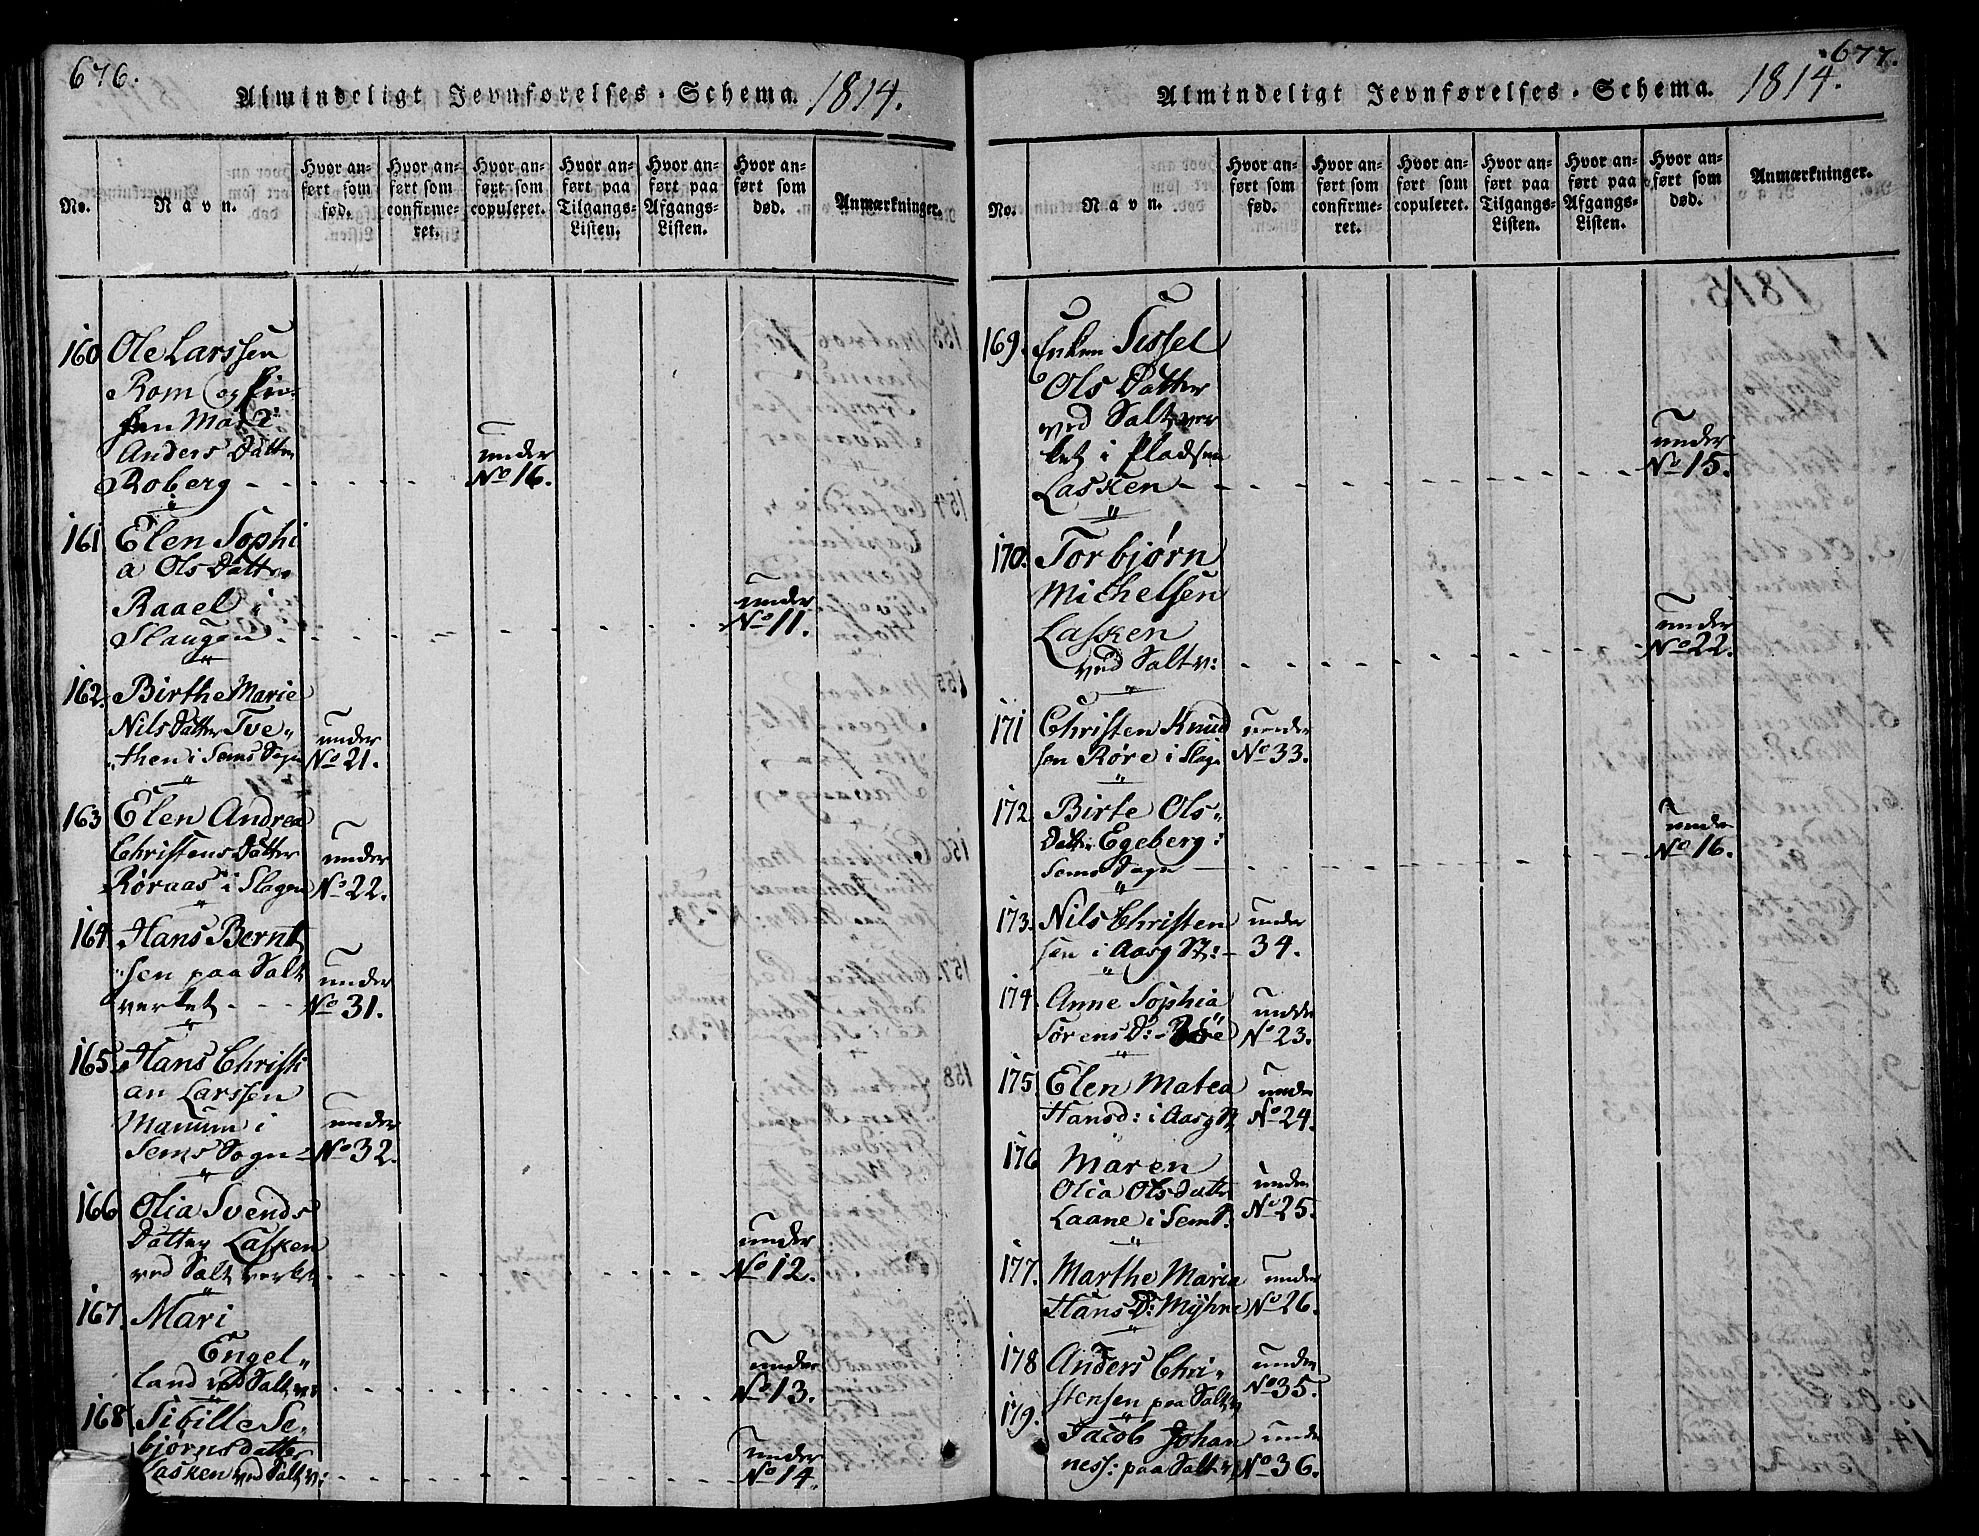 676.
Almindeligt Jevnførelses-Schema. 1814.
No.
Navn.
Hvor an-
ført som
fød.
Hvor an-
ført som
confirme-
ret.
Hvor an-
ført som
copuleret.
Hvor an-
ført paa
Tilgangs-
Listen.
Hvor an-
ført paa
Afgangs-
Listen.
Hvor an-
ført som
død.
Anmærkninger.
160 Ole Larssen
Rom og
Mari
Anders Datter
Roberg
under
No 16.
161 Elen Sophi
a Ols Datter
Raael i
Slaugen
under
No 11.
162. Birthe Marie
Nils Datter Tve„
then i Sems Sogn
under
No 21.
163 Elen Andrea
Christens Datter
Røraas i Slagen
under
No 22.
164. Hans Bernt
sen paa Salt
verket
under
No 31.
165. Hans Christi
an Larssen
Manum i
Sems Sogn
under
No 32.
166 Olia Svends
Datter Lasken
ved Salt verket
under
No 12.
167. Mari
Engel„
land ved Salt v:
under
No 13.
168 Sibille Se„
bjørnsdatter
Lasken ved Salt v:
under
No 14.
677.
Almindeligt Jevnførelses-Schema. 1814.
No.
Navn.
Hvor an-
ført som
fød.
Hvor an-
ført som
confirme-
ret.
Hvor an-
ført som
copuleret.
Hvor an-
ført paa
Tilgangs-
Listen.
Hvor an-
ført paa
Afgangs-
Listen.
Hvor an-
ført som
død.
Anmærkninger.
169. Enken Sissel
Ols Datter
ved Saltver
ket i Pladsen
Lasken
under
No 15.
170. Torbjørn
Michelsen
Lasken
ved Saltv:
under
No 22.
171 Christen Knud
sen Røre i Slag:
under
No 33.
172. Birte Ols„
Datter Egeberg i
Sems Sogn
under
No 16.
173. Nils Christen
sen i Aasg St:
under
34.
174. Anne Sophia
Sørens D:
under
No 23.
175 Elen Matea
Hansd: i Aasg St
under
No 24.
176 Maren
Olia Olsdatter
Laane i Sem
under
No 25.
177. Marthe Maria
Hans D: Myhre
under
No 26.
178 Anders Chri„
stensen paa Saltv
under
No 35.
179. Jacob Johan
ness: paa Saltv
under
No 36.